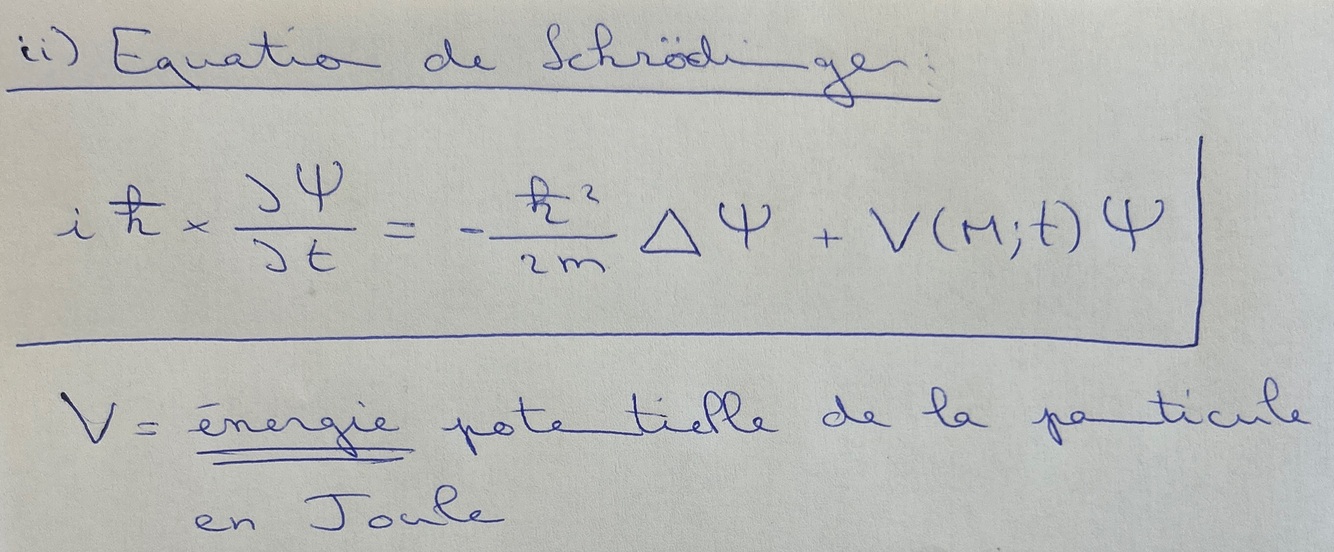 ii) Equation de Schrödinger:
iℏ × ∂Ψ/∂t = -ℏ²/2m ΔΨ + V(M;t)Ψ
V = énergie potentielle de la particule
en Joule